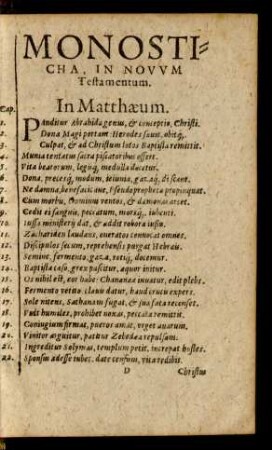 MONOSTI-
CHA, IN NOVVM
Testamentum.
In Matthæum.
Cap.
1. Panditur Abrahidæ genus, & conceptio, Christi.
2. Dona Magi portant: Herodes sæuit, obitq́;.
3. Culpat, & ad Christum lotos Baptista remittit.
4. Munia tentatus sacra piscatoribus offert.
5. Vita beatorum, legisq́, medulla docetur.
6. Dona, precesq́, modum, ieiunia, gazaq́, discant.
7. Ne damna, benefac, cane, Pseudopropheta propinquat.
8. Cum morbis, Dominus ventos, & dæmonas arcet.
9. Cedit ei sanguis, peccatum, morsq́, iubenti.
10. Iussis ministerij dat, & addit robora iussis.
11. Zachariden laudans, oneratos conuocat omnes.
12. Discipulos secum, reprehensis purgat Hebræis.
13. Semine, fermento, gaza, retiq́, docemur.
14. Baptista cæso, grex pascitur, æquor initur.
15. Os nihil est, cor habe: Chananæa iuuatur, edit plebs.
16. Fermento vetito, clauis datur, haud crucis expers.
17. Sole nitens, Sathanam fugat, & sua fata recenset.
18. Vult humiles, prohibet noxas, peccata remittit.
19. Coniugium firmat, pueros amat, vrget auarum.
20. Vinitor arguitur, patitur Zebedæa repulsam.
21. Ingreditur Solymas, templum petit, increpat hostes.
22. Sponsis adesse iubet, date censum, vita redibit.
D Christus